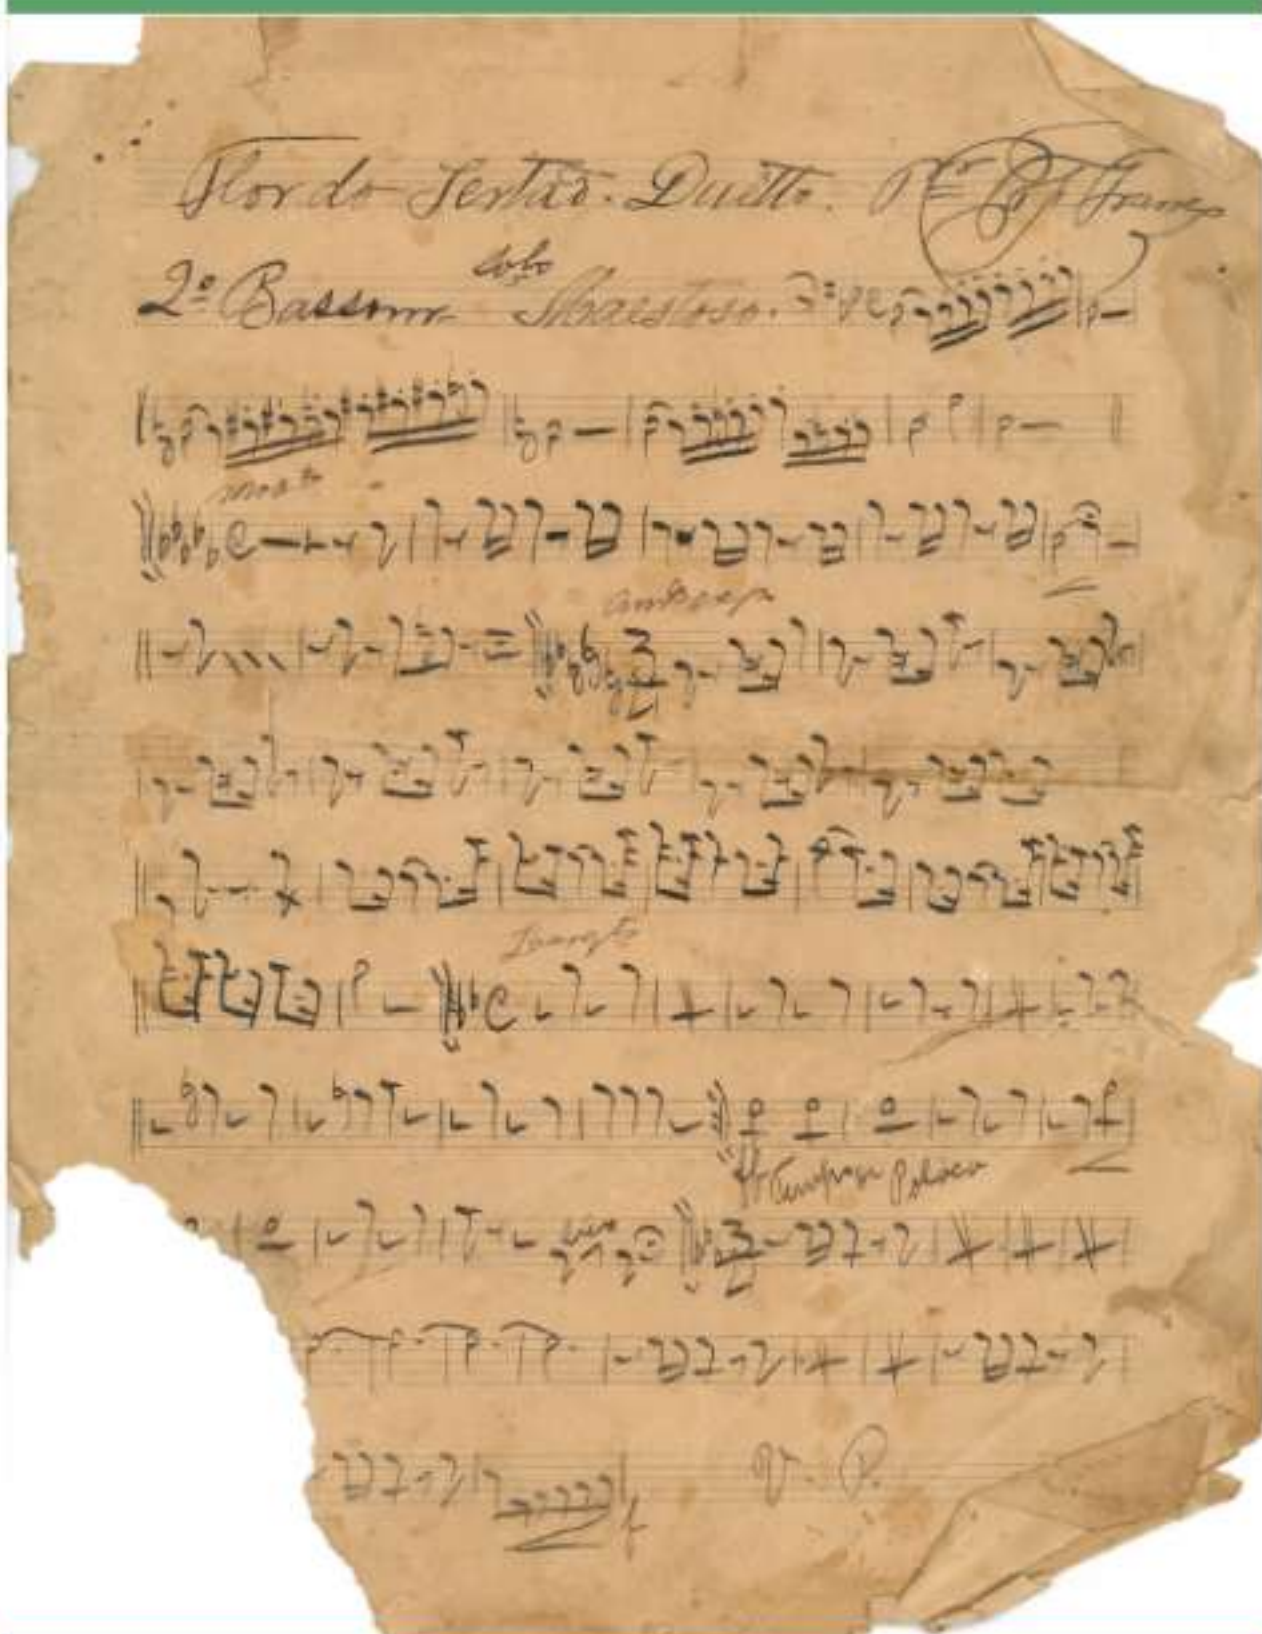 Flor do Sertão. Duetto. Pr
2º Basson solo Maestoso.
Mod to
Andante
Largo
ff Tempo Polaca
V. P.